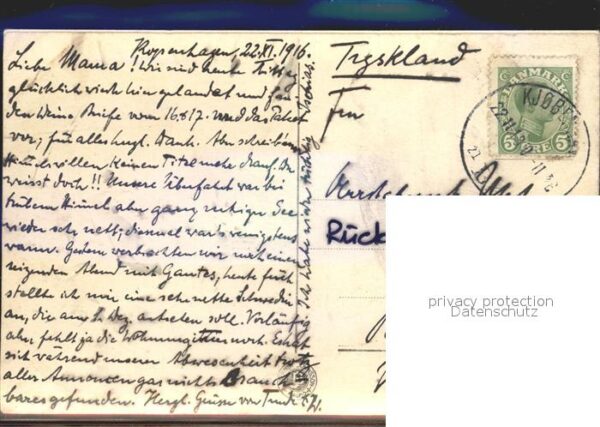 Kopenhagen, 22.XI.1916.
Liebe Mama! Wir sind heute Mittag
glücklich wieder hier gelandet und fan
den Deine Briefe vom 16. & 17. und das Paket
vor; für alles herzl. Dank. Aber schreibe um
Himmelswillen keinen Titel mehr drauf. Du
weisst doch!! Unsere Überfahrt war bei
trübem Himmel aber ganz ruhiger See
wieder sehr nett; diesmal war's wenigstens
warm. Gestern verbrachten wir noch einen
reizenden Abend mit Gantes, heute früh
stellte ich mir eine sehr nette Schwedin
an, die am 1. Dez. antreten soll. Vorläufig
aber fehlt ja die Wohnung immer noch. Es hat
sich während unserer Abwesenheit trotz
aller Annoncen gar nichts Brauch
bares gefunden. Herzl. Grüsse von
Tyskland
Frau
Rück
DANMARK
5 ØRE 5
KJØB
privacy protection
Datenschutz